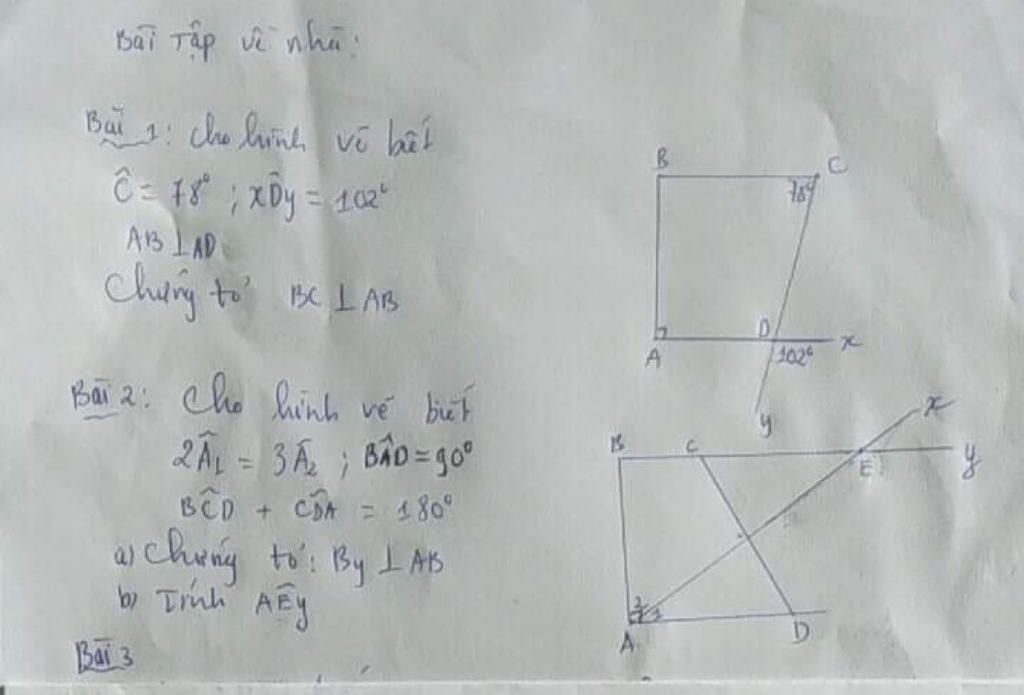 Bài Tập về nhà:
Bài 1: Cho hình vẽ biết
Ĉ = 78° ; xD̂y = 102°
AB ⊥ AD
Chứng tỏ BC ⊥ AB
B
C
78°
D
A
102°
x
y
Bài 2: Cho hình vẽ biết
2Â₁ = 3Â₂ ; BÂD = 90°
BĈD + CD̂A = 180°
a) Chứng tỏ: By ⊥ AB
b) Tính AÊy
B
C
x
E
y
A
D
Bài 3